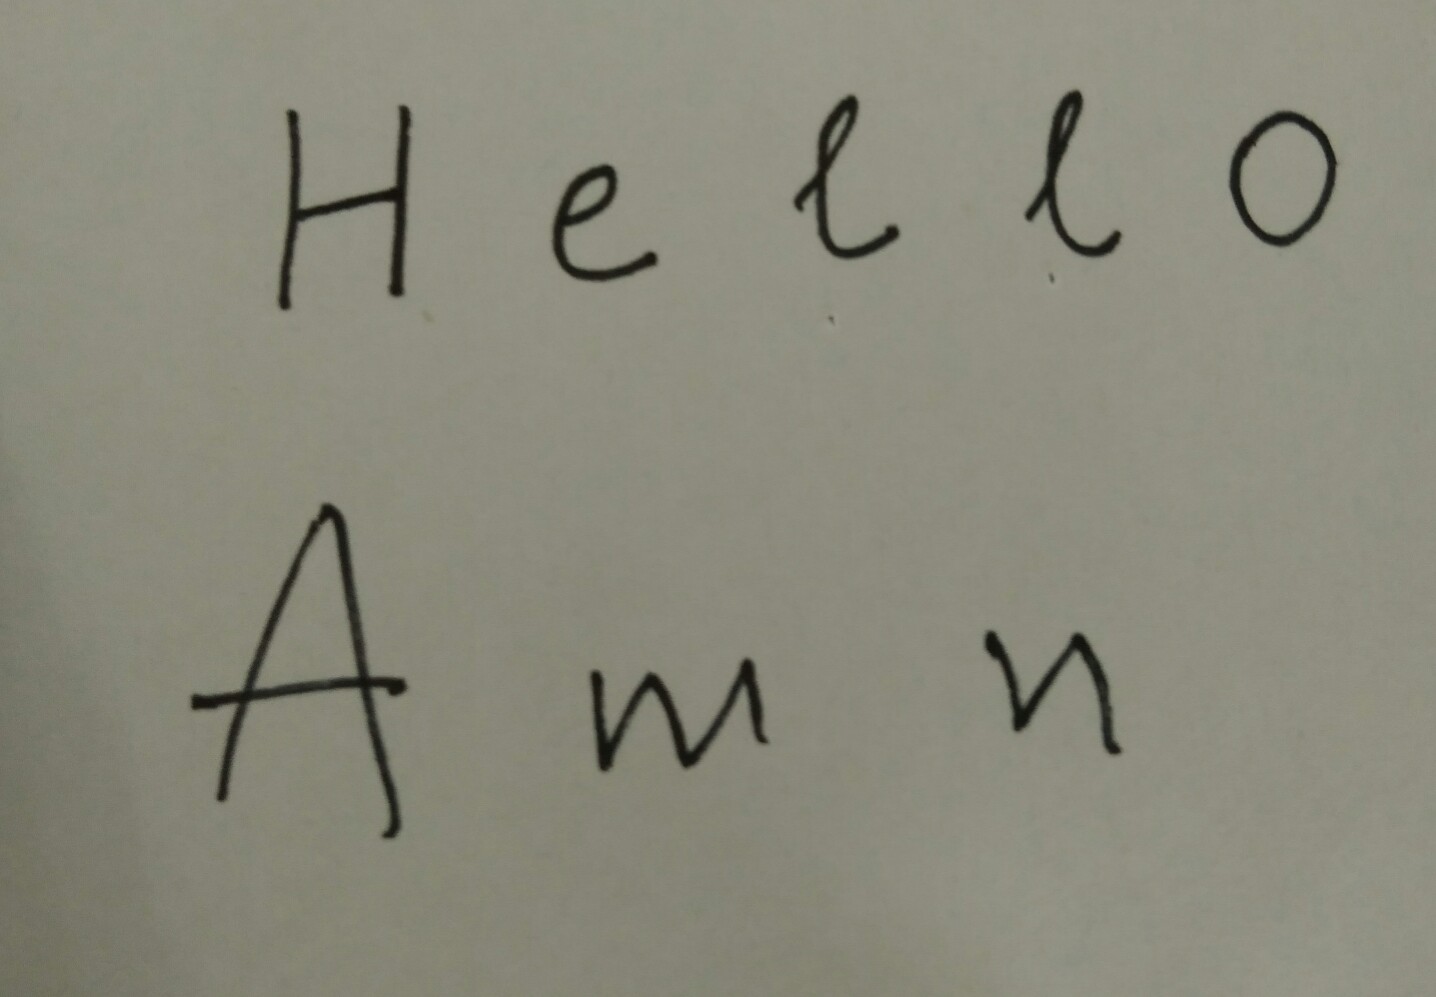 Hello
Amn